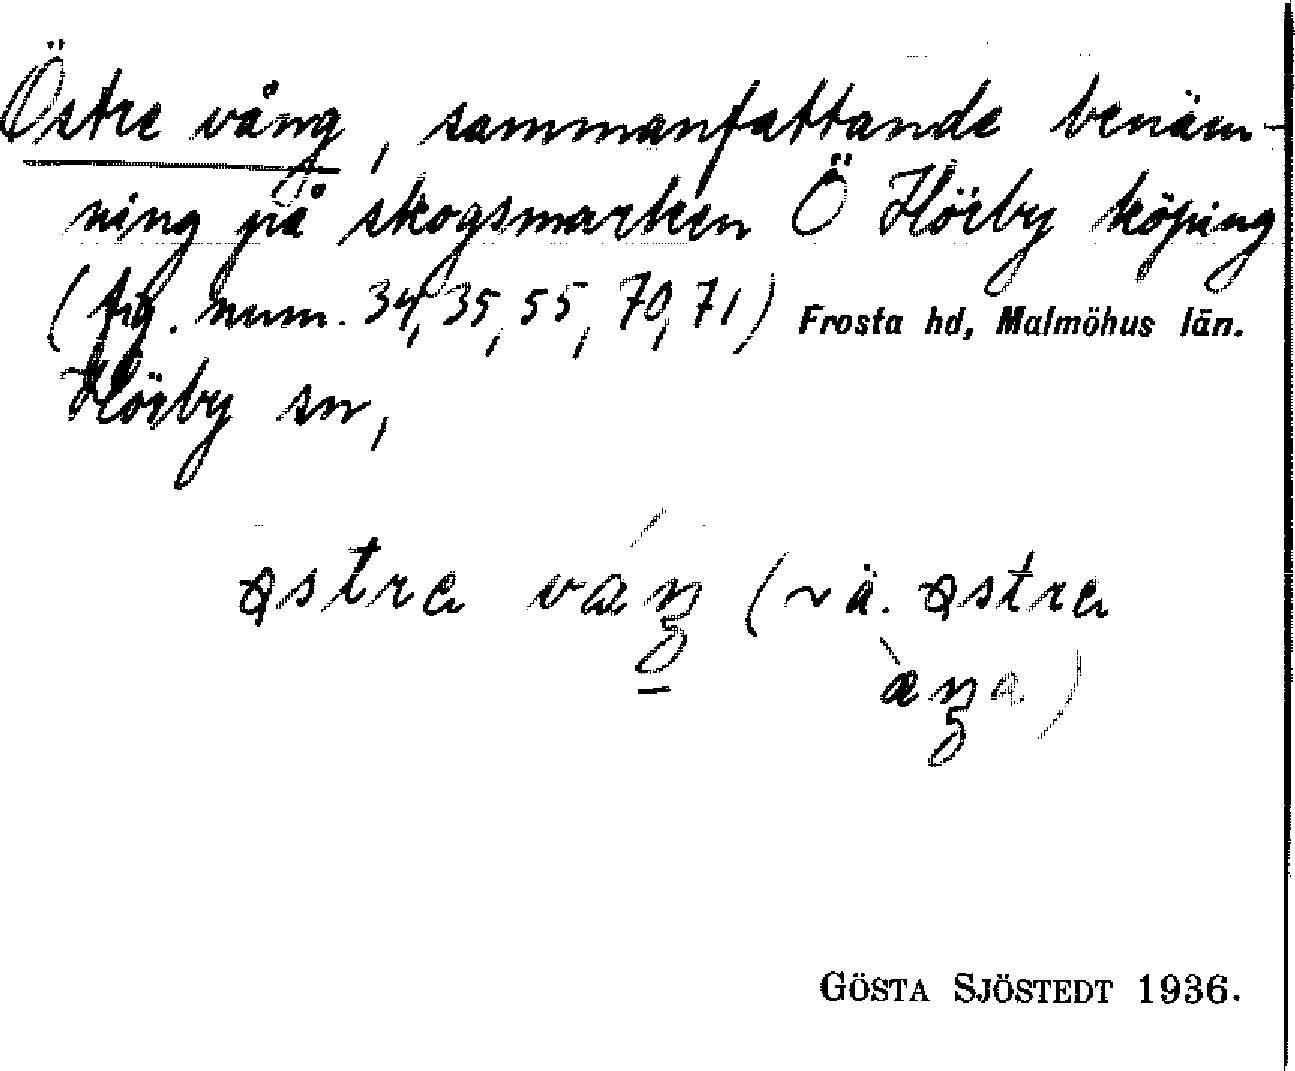 Östre vång, sammanfattande benäm-
ning på skogsmarken Ö Hörby köping
(fig. num. 34, 35, 55, 70, 71) Frosta hd, Malmöhus län.
Hörby sn,
GÖSTA SJÖSTEDT 1936.